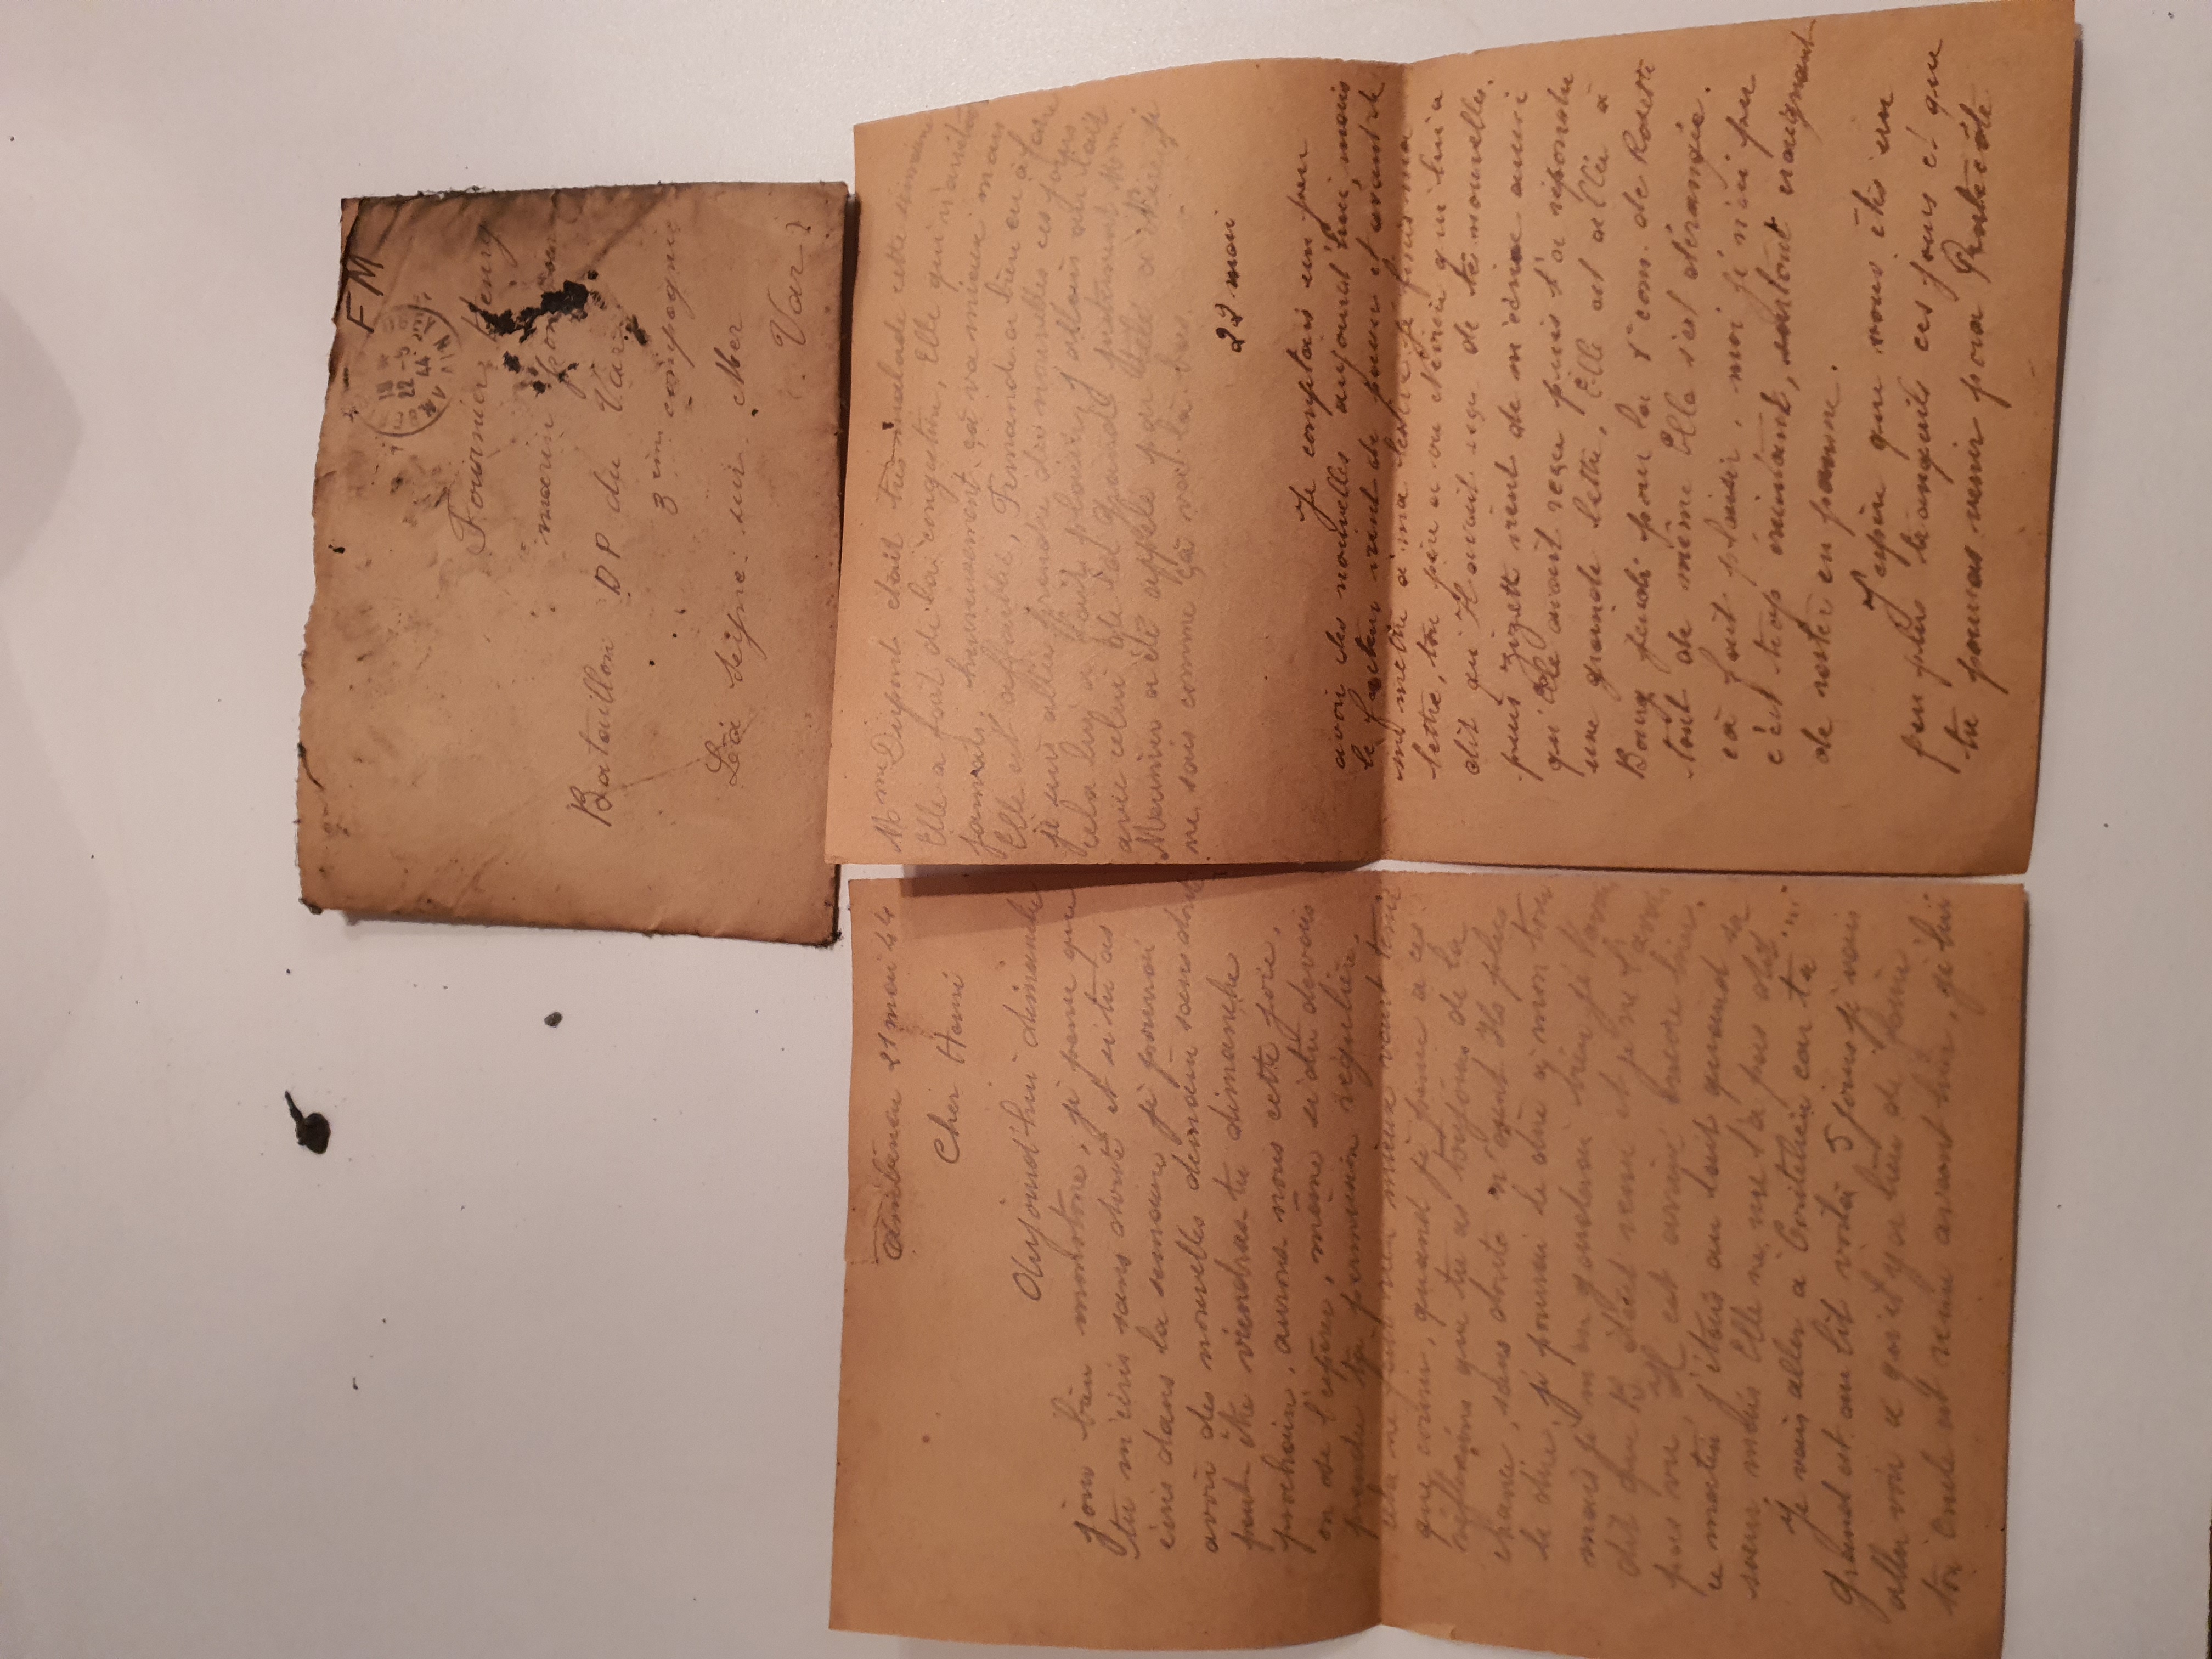 FM
18
22 - 5
44
Fournier Henry
marin pompier
Bataillon DP du Var
3ème compagnie
La Seyne sur Mer
Var
Ambérieu 21 mai 44
Cher Henri
Aujourd'hui dimanche
jour bien monotone, je pense que
tu m'écris sans doute et si tu as
écris dans la semaine je pourrai
avoir des nouvelles demain sans doute
peut-être viendras-tu dimanche
prochain, aurons-nous cette joie,
on ose l'espérer, même si tu devais
prendre ta permission régulière,
cela ne fait rien mieux vaut tenir
que courir, quand je pense a ces
réflexions que tu as toujours de la
chance, sans doute n'osent Ils plus
le dire, je pourrai le dire à mon tour
mais je m'en garderai bien je t'avais
dit que B était venu et je ne l'avais
pas vu, Il est arrivé encore hier,
ce matin j'étais au lait quand sa
soeur, mais Elle ne me l'a pas dit
Je vais aller à car ta
Grand est au lit voilà 5 jours je vais
aller voir ce qu'il y a lieu de faire
ton Oncle est venu avant hier, je lui
Mme Dupont était très malade cette semaine
Elle a fait de la congestion, Elle qui n'arrêtait
jamais, heureusement çà va mieux mais
Elle est affaiblie, Fernande a bien eu à faire
je suis allée prendre des nouvelles ces jours
cela lui a fait plaisir, j'allais au lait
avec celui de la Grand justement Mme
Meunier a été appelé par télé à je
ne sais comme çà va là-bas.
22 mai
Je comptais un peu
avoir des nouvelles aujourd'hui, mais
le facteur vient de passer et avant de
me mettre à ma lessive je finis ma
lettre, ton père a vu qui lui a
dit qu'Il avait reçu de tes nouvelles.
puis Zizette vient de m'écrire aussi
qu'Elle avait reçu puis t'a répondu
une grande lettre, Elle est allée à
Bourg jeudi pour la 1e com. de Rosette
tout de même Elle s'est dérangée.
çà fait plaisir, moi je n'ai pu
c'est trop éreintant, surtout craignant
de rester en panne.
J'espère que vous êtes un
peu plus tranquils ces jours et que
tu pourras venir pour Pentecôte